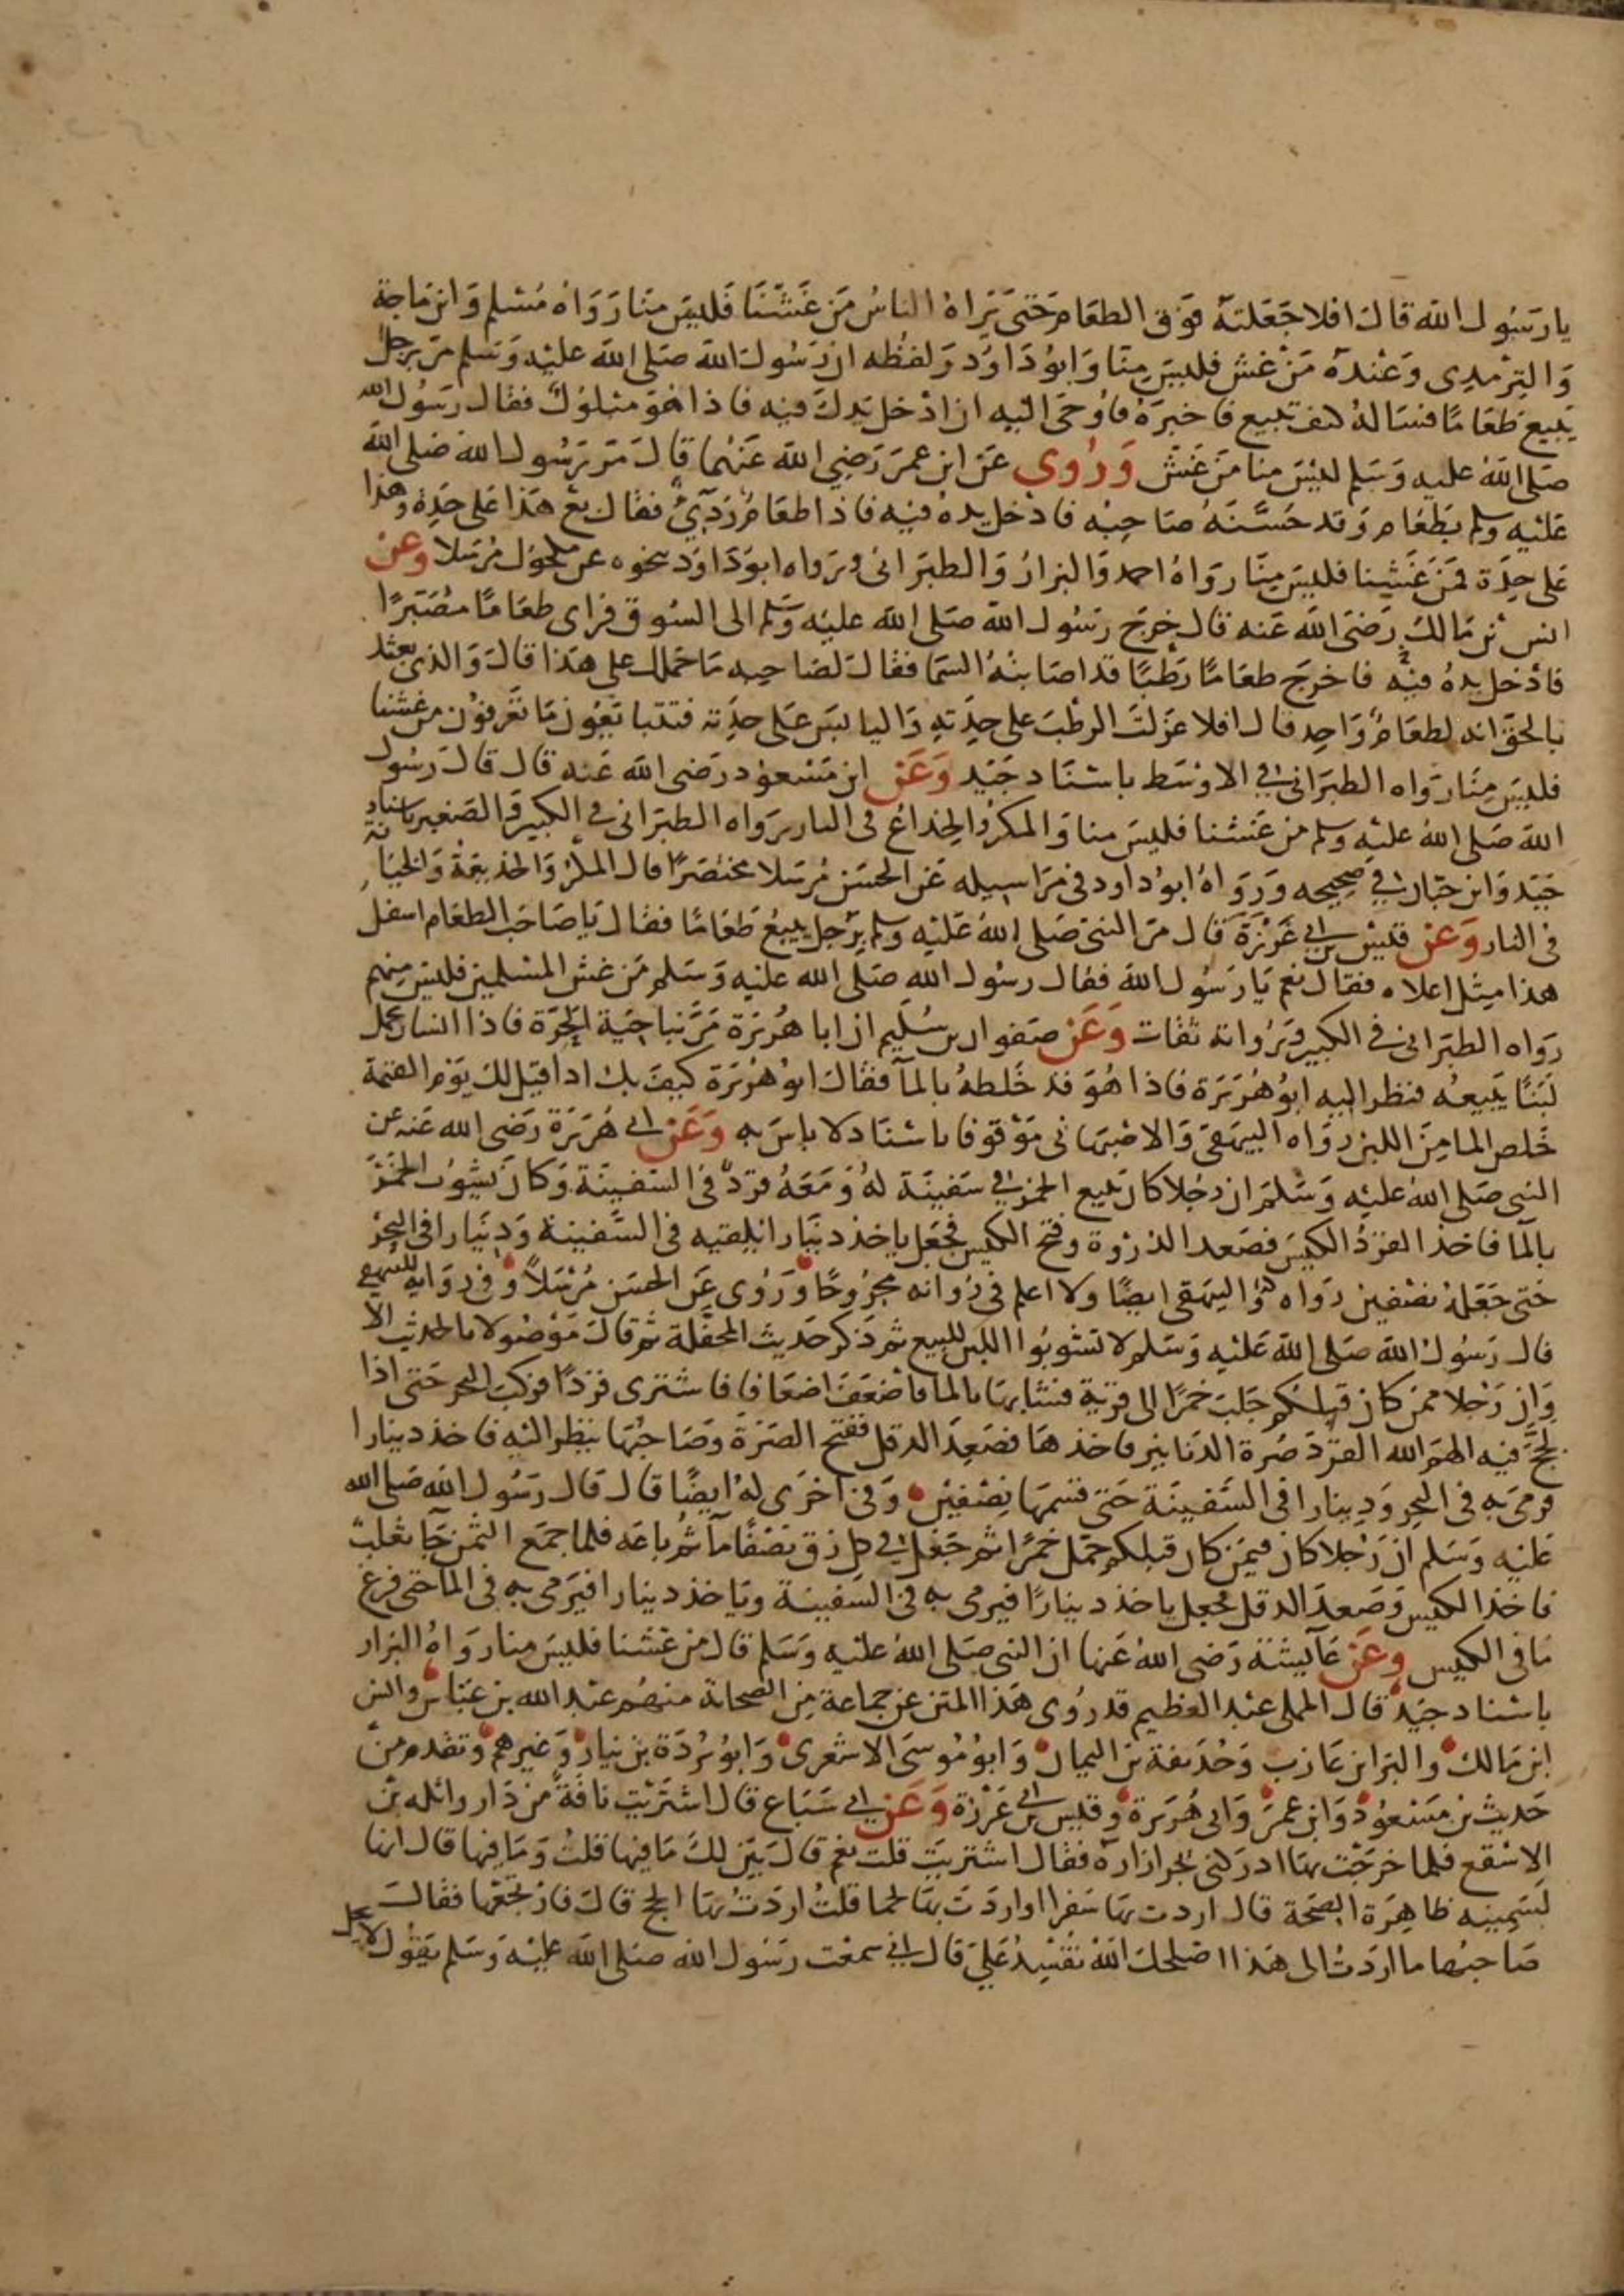 يا رسول الله قال افلا جعلته فوق الطعام حتى يراه الناس من غشنا فليس منا رواه مسلم وابن ماجة
والترمدى وعنده من غش فليس منا وابو داود ولفظه ان رسول الله صلى الله عليه وسلم مر برجل
يبيع طعاما فساله كيف تبيع فاخبره فاوحى اليه ان ادخل يدك فيه فاذا هو مبلول فقال رسول الله
صلى الله عليه وسلم ليس منا من غش وروى عن ابن عمر رضي الله عنهما قال مر رسول الله صلى الله
عليه وسلم بطعام وقد حسنه صاحبه فادخل يده فيه فاذا طعام ردىء فقال بع هذا على حدة وهذا
على حدة فمن غشنا فليس منا رواه احمد والبزار والطبرانى ورواه ابو داود بنحوه عن مكحول مرسلا وعن
انس بن مالك رضى الله عنه قال خرج رسول الله صلى الله عليه وسلم الى السوق فراى طعاما مصبرا
فادخل يده فيه فاخرج طعاما رطبا قد اصابته السما فقال لصاحبه ما حملك على هذا قال والذى بعثك
بالحق انه لطعام واحد قال افلا عزلت الرطب على حدته واليابس على حدته فتتبايعون ما تعرفون من غشنا
فليس منا رواه الطبرانى فى الاوسط باسناد جيد وعن ابن مسعود رضى الله عنه قال قال رسول
الله صلى الله عليه وسلم من غشنا فليس منا والمكر والخداع فى النار رواه الطبرانى فى الكبير والصغير باسناد
جيد وابن حبان فى صحيحه ورواه ابو داود فى مراسيله عن الحسن مرسلا مختصرا قال المكر والخديعة والخيانة
فى النار وعن قيس بن ابى غرزة قال مر النبى صلى الله عليه وسلم برجل يبيع طعاما فقال يا صاحب الطعام اسفل
هذا مثل اعلاه فقال نعم يا رسول الله فقال رسول الله صلى الله عليه وسلم من غش المسلمين فليس منهم
رواه الطبرانى فى الكبير ورواته ثقات وعن صفوان بن سليم ان ابا هريرة مر بناحية الحرة فاذا انسان يحمل
لبنا يبيعه فنظر اليه ابو هريرة فاذا هو قد خلطه بالمآ فقال ابو هريرة كيف بك اذا قيل لك يوم القيمة
خلص الما من اللبن رواه البيهقى والاصبهانى موقوفا باسناد لا باس به وعن ابى هريرة رضى الله عنه عن
النبى صلى الله عليه وسلم ان رجلا كان يبيع الخمر فى سفينة له ومعه قرد فى السفينة وكان يشوب الخمر
بالمآ فاخذ القرد الكيس فصعد الذروة وفتح الكيس فجعل ياخذ دينارا فيلقيه فى السفينة ودينارا فى البحر
حتى جعله نصفين رواه البيهقى ايضا ولا اعلم فى رواته مجروحا وروى عن الحسن مرسلا وفى رواية للبيهقى
قال رسول الله صلى الله عليه وسلم لا تشوبوا اللبن للبيع ثم ذكر حديث المحفلة ثم قال موصولا بالحديث الا
وان رجلا ممن كان قبلكم جلب خمرا الى قرية فشابها بالما فاضعف اضعافا فاشترى قردا فركب البحر حتى اذا
لجج فيه الهم الله القرد صرة الدنانير فاخذها فصعد الدقل ففتح الصرة وصاحبها ينظر اليه فاخذ دينارا
فرمى به فى البحر ودينارا فى السفينة حتى قسمها نصفين وفى اخرى له ايضا قال قال رسول الله صلى الله
عليه وسلم ان رجلا كان فيمن كان قبلكم حمل خمرا ثم جعل فى كل زق نصفا مآ ثم باعه فلما جمع الثمن جآ ثعلب
فاخذ الكيس وصعد الدقل فجعل ياخذ دينارا فيرمى به فى السفينة وياخذ دينارا فيرمى به فى الما حتى فرغ
ما فى الكيس وعن عآيشة رضى الله عنها ان النبى صلى الله عليه وسلم قال من غشنا فليس منا رواه البزار
باسناد جيد قال المملى عبد العظيم قد روى هذا المتن عن جماعة من الصحابة منهم عبد الله بن عباس وانس
ابن مالك والبرا بن عازب وحذيفة بن اليمان وابو موسى الاشعرى وابو بردة بن نيار وغيرهم وتقدم من
حديث بن مسعود وابن عمر وابى هريرة وقيس بن ابى غرزة وعن ابى سباع قال اشتريت ناقة من دار واثله بن
الاسقع فلما خرجت بها ادركنى يجر ازاره فقال اشتريت قلت نعم قال بين لك ما فيها قلت وما فيها قال انها
لسمينه ظاهرة الصحة قال اردت بها سفرا او اردت بها لحما قلت اردت بها الحج قال فارتجعها فقال
صاحبها ما اردت الى هذا اصلحك الله تفسد على قال انى سمعت رسول الله صلى الله عليه وسلم يقول لا يحل